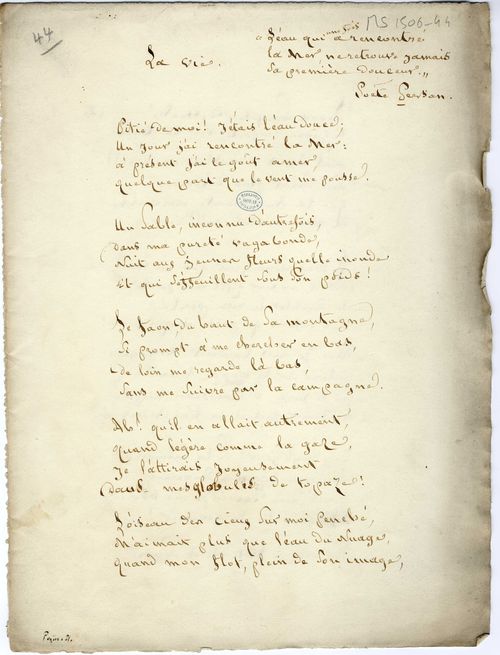 44
MS 1506-44
« L'eau qui une fois a rencontré
la Mer ne retrouve jamais
sa première douceur. »
Poëte Persan.
La vie.
Pitié de moi! J'étais l'eau douce;
Un jour j'ai rencontré la Mer:
à présent j'ai le goût amer,
quelque part que le vent me pousse.
Un Sable, inconnu d'autrefois,
dans ma pureté vagabonde,
Nuit aux jeunes fleurs qu'elle inonde
Et qui s'effeuillent sous son poids!
Le faon, du haut de sa montagne,
Si prompt à me chercher en bas,
de loin me regarde là bas,
Sans me suivre par la campagne.
Ah! qu'il en allait autrement,
quand légère comme la gaze,
Je l'attirais joyeusement
dans mes globules de topaze!
L'oiseau des cieux sur moi penché,
N'aimait plus que l'eau du Nuage,
quand mon flot, plein de son image,